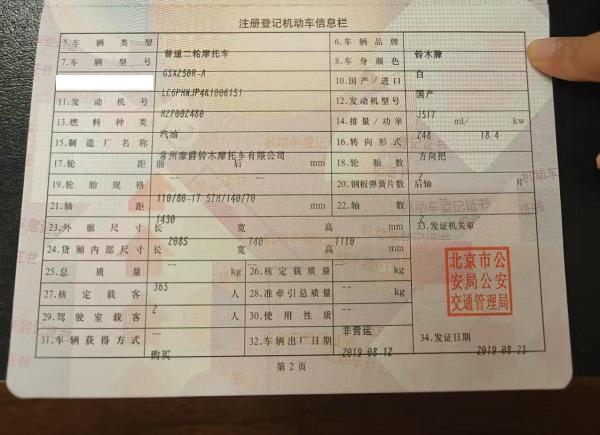 注册登记机动车信息栏
5.车辆类型 普通二轮摩托车 6.车辆品牌 铃木牌
7.车辆型号 GSX250R-A 8.车身颜色 白
LC6PHNJP4K1006151 10.国产/进口 国产
11.发动机号 H2F002480 12.发动机型号 J517
13.燃料种类 汽油 14.排量/功率 248 ml/ 18.4 kw
15.制造厂名称 常州豪爵铃木摩托车有限公司 16.转向形式 方向把
17.轮距 前 后 mm 18.轮胎数 2
19.轮胎规格 110/80-17 57H/140/70 20.钢板弹簧片数 后轴 片
21.轴距 1430 mm 22.轴数 2
23.外廓尺寸 长 2085 宽 740 高 1110 mm 33.发证机关章
24.货厢内部尺寸 长 -- 宽 -- 高 -- mm
25.总质量 365 kg 26.核定载质量 -- kg
27.核定载客 2 人 28.准牵引总质量 -- kg
29.驾驶室载客 -- 人 30.使用性质 非营运
31.车辆获得方式 购买 32.车辆出厂日期 2019-08-12 34.发证日期 2019-08-23
北京市公
安局公安
交通管理局
第2页